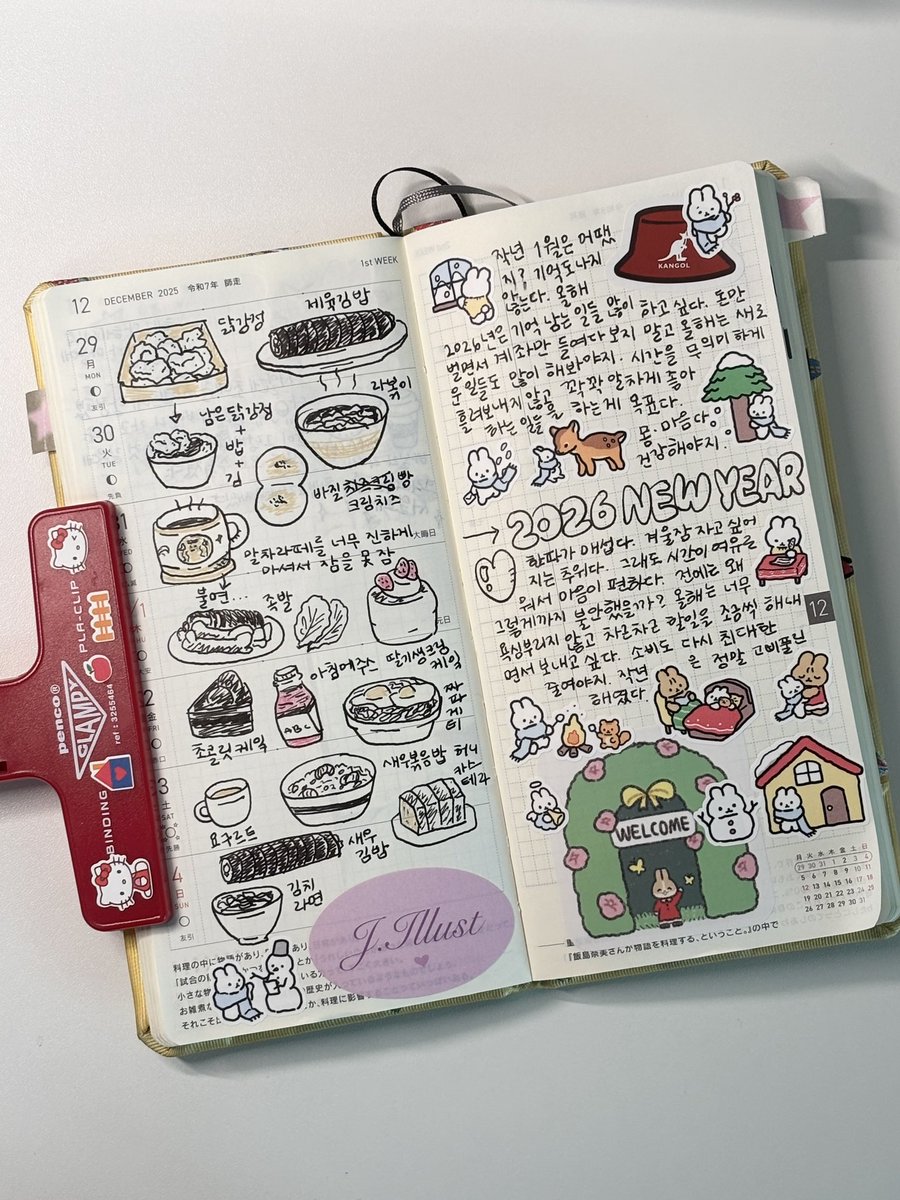 12 DECEMBER 2025 令和7年 師走
1st WEEK
29
月
MON
友引
닭강정
제육김밥
30
火
TUE
先負
남은닭강정
+
밥
+
김
라볶이
바질 빵
크림치즈
31
大晦日
말차라떼를 너무 진하게
마셔서 잠을 못 잠
불면...
족발
/1
元日
아침에주스
딸기생크림
케잌
ABC
2
金
FRI
초콜릿 케잌
짜파게티
3
土
SAT
先勝
요구르트
새우볶음밥
허니
카스
테라
새우
김밥
4
日
SUN
友引
김치
라면
J.Illust
料理の中に物語があり、
「試合の
小さな物
お雑煮
それこそ
penco®
CLAMPY
PLA-CLIP
ref : 3255464
BINDING
KANGOL
작년 1월은 어땠
지? 기억도나지
않는다. 올해
2026년은 기억 남는 일들 많이 하고 싶다. 돈만
벌면서 계좌만 들여다 보지 말고 올해는 새로
운 일들도 많이 해봐야지. 시간을 무의미하게
흘려보내지 않고 꽉꽉 알차게 좋아
하는 일들을 하는게 목표다.
몸·마음 다
건강해야지.
→ 2026 NEW YEAR
한파가 매섭다. 겨울잠 자고 싶어
지는 추위다. 그래도 시간이 여유로
워서 마음이 편하다. 전에는 왜
그렇게까지 불안했을까? 올해는 너무
욕심부리지 않고 차근차근 할일을 조금씩 해내
면서 보내고 싶다. 소비도 다시 최대한
줄여야지. 작년은 정말 고삐풀린
해였다.
12
WELCOME
月 火 水 木 金 土 日
1 2 3 4
5 6 7 8 9 10 11
12 13 14 15 16 17 18
19 20 21 22 23 24 25
26 27 28 29 30 31
『飯島奈美さんが物語を料理する、ということ。』の中で